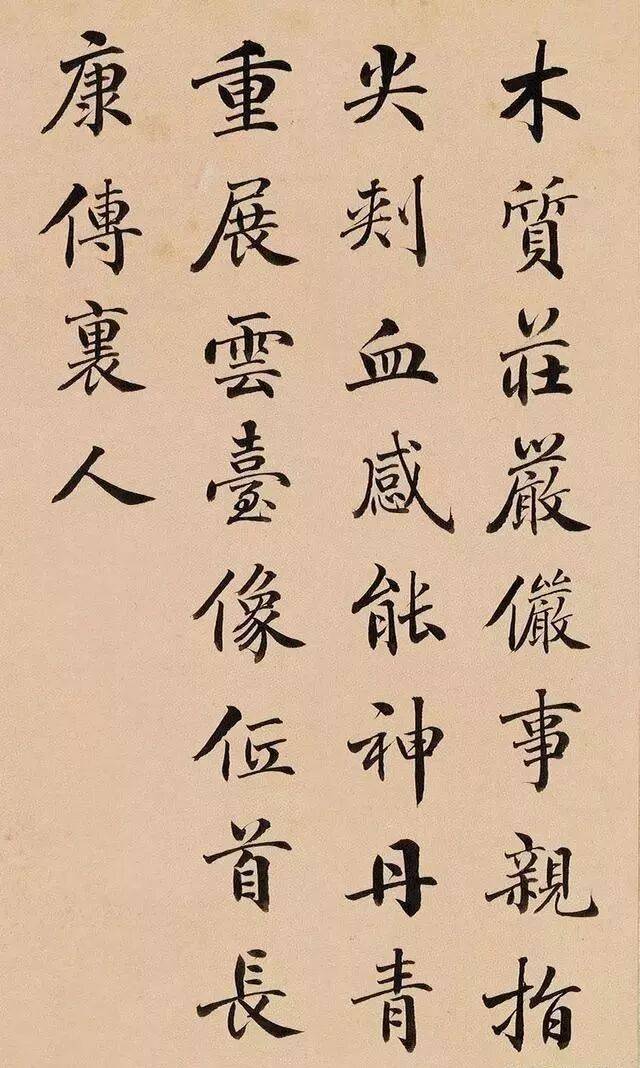 木質莊嚴儼事親指
尖刾血感能神丹青
重展雲臺像伍首長
康傳裏人